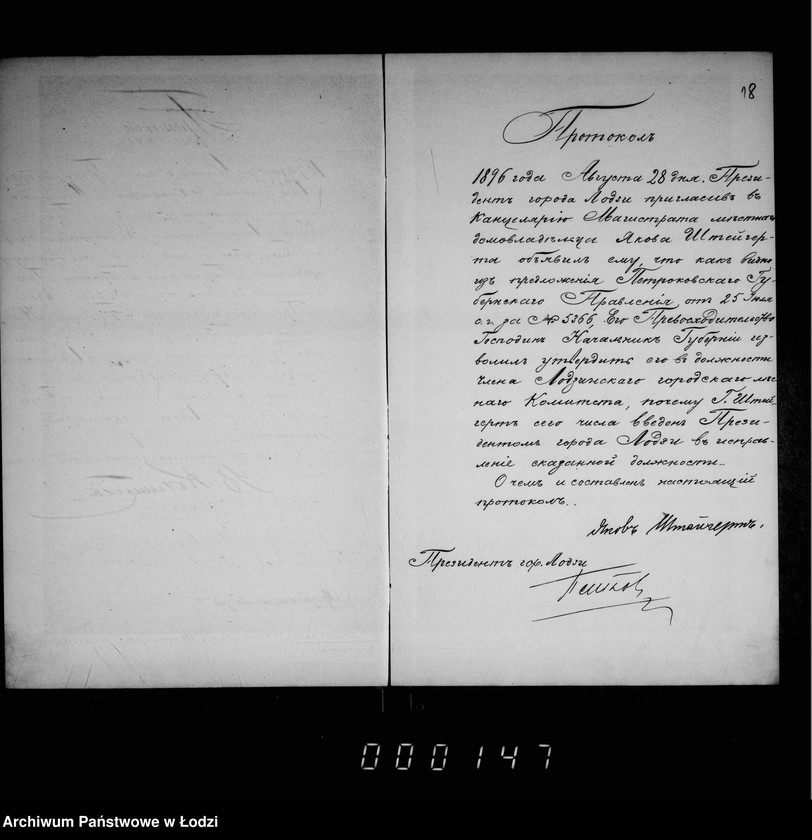 18
Протоколъ
1896 года Августа 28 дня. Прези-
дентъ города Лодзи пригласивъ въ
Канцелярію Магистрата мѣстнаго
домовладѣльца Якова Штейгер-
та объявилъ ему, что какъ видно
изъ предложенія Петроковскаго Гу-
бернскаго Правленія, отъ 25 Іюля
с. г. за № 5366, Его Превосходительство
Господинъ Начальникъ Губерніи из-
волилъ утвердить его въ должности
члена Лодзинскаго городскаго лѣс-
наго Комитета, почему Г. Штей-
гертъ сего числа введенъ Прези-
дентомъ города Лодзи въ исправ-
леніе сказанной должности..
О чемъ и составленъ настоящій
протоколъ..
Яковъ Штейгертъ.
Президентъ гор. Лодзи
Пеньков
000147
Archiwum Państwowe w Łodzi